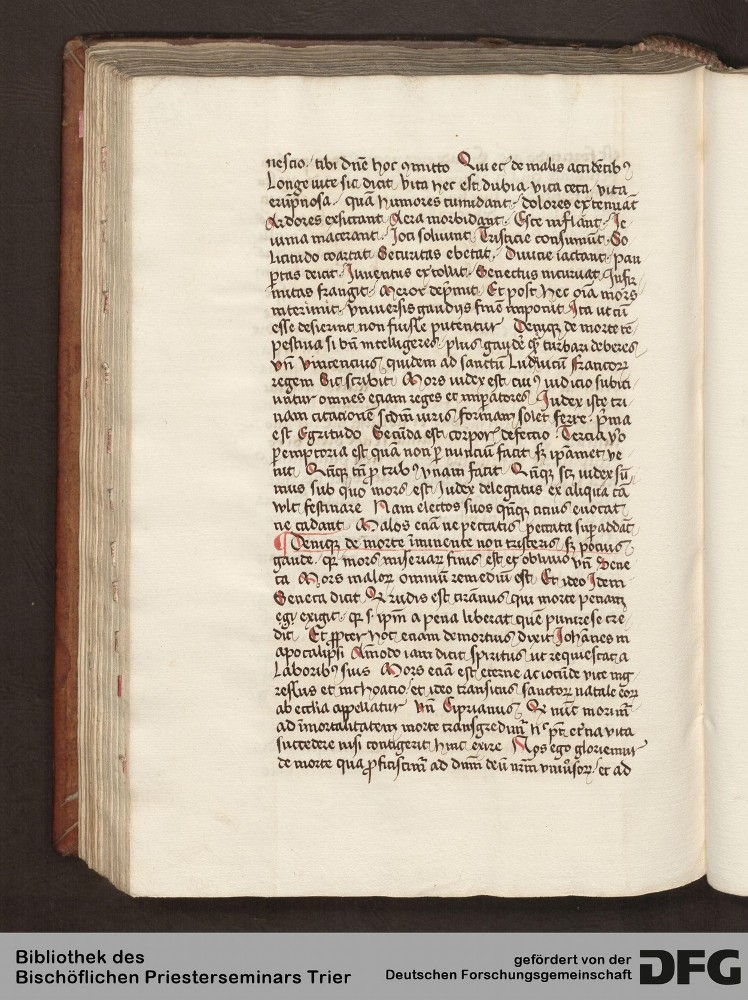 nescio / tibi dne hoc
Longe vite sic dicit Vita hec est dubia vita ceca vita
erupnosa quam humores tumidant dolores extenuant
Ardores exsiccant Aera morbidant Esce inflant Je
iunia macerant Joci soluunt Tristicie consumunt So
licitudo coartat Securitas ebetat Diuicie iactant pau
ptas deicit Juuentus extollit Senectus incuruat Infir
mitas frangit Meror deprimit Et post hec oia mors
interimit vniuersis gaudiis finem imponit Ita ut cu
esse desierint non fuisse putentur Deniqz de morte te
pestiua si bn intelligeres plus gaudere qz turbari deberes
vn Vincencius quidem ad sanctu Ludouicu Francorum
regem Sic scribit Mors iudex est cuius iudicio subici
untur omnes eciam reges et imperatores Judex iste tri
nam citacionem scdm iuris formam solet ferre prima
est Egritudo Secunda est corporis defectio Tercia vero
peremptoria est quam non per nuncium facit sz ipamet ve
nit Qnqz tn pro tribus vnam facit Qnqz scz iudex su
mus sub quo mors est Judex delegatus ex aliqua ca
vult festinare Nam electos suos qnqz cicius euocat
ne cadant Malos ecia ne peccatis peccata supaddat
Deniqz de morte iminente non tristeris sz pocius
gaude qz mors miseriarum finis est et obliuio vn Sene
ca Mors malorum omnium remediu est Et ideo Idem
Seneca dicit Rudis est tirannus qui morte penam
exigit qz s ipm a pena liberat quem punire cre
dit Et propter hoc eciam de mortuis dixit Johannes in
apocalipsi Amodo iam dicit spiritus ut requiescat a
Laboribus suis Mors ecia est eterne ac iocunde vite ing
ressus et inchoacio et ideo transitus sanctorum natale eorum
ab ecclia appellatur vn Ciprianus
ad inmortalitatem morte transgredimur vita
succedere nisi contigerit hinc exire Nos ergo gloriemur
de morte qua proficiscimur ad dnm deu nrm vniuersorum et ad
Bibliothek des
Bischöflichen Priesterseminars Trier
gefördert von der
Deutschen Forschungsgemeinschaft
DFG